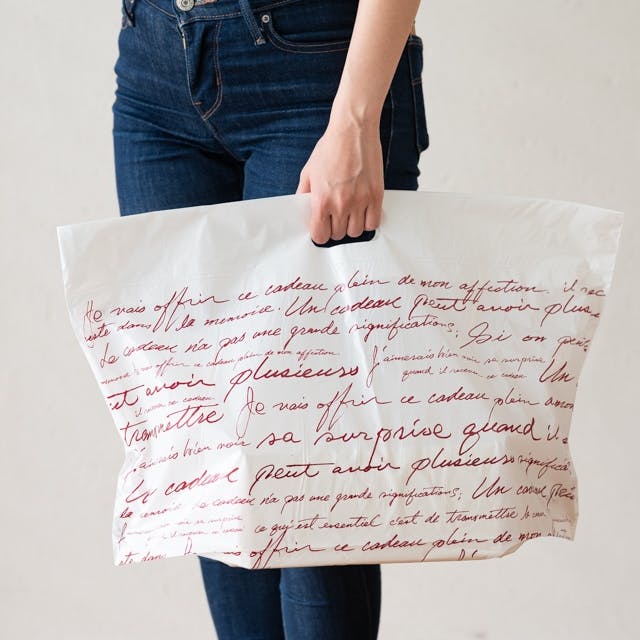 Je vais offrir ce cadeau plein de mon affection. il
reste dans la memoire. Un cadeau peut avoir plus
Le cadeau n'a pas une grande significations; Si on peut
offrir ce cadeau plein de mon affection J'aimerais bien voir sa surprise Un
et avoir plusieurs quand il recevra ce cadeau
transmettre Je vais offrir ce cadeau plein
J'aimerais bien voir sa surprise quand il
Un cadeau peut avoir plusieurs significa
la memoire Le cadeau n'a pas une grande significations; Un cadeau peut
voir sa surprise ce qu'est essentiel c'est de transmettre le
te dans Je vais offrir ce cadeau plein de mon